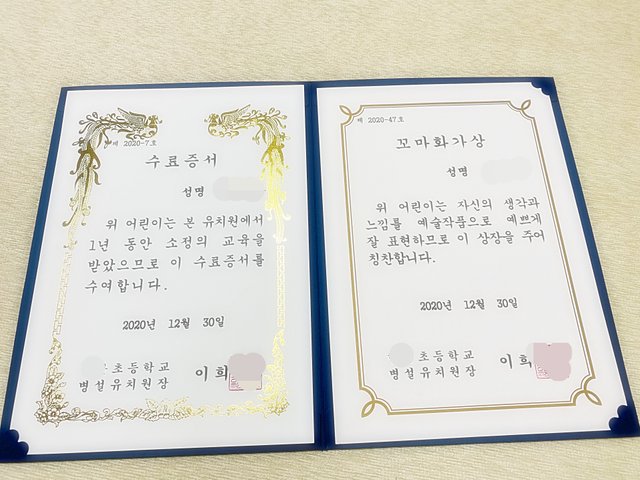 제 2020-7호
수료증서
성명
위 어린이는 본 유치원에서
1년 동안 소정의 교육을
받았으므로 이 수료증서를
수여합니다.
2020년 12월 30일
초등학교
병설유치원장 이희
제 2020-47호
꼬마화가상
성명
위 어린이는 자신의 생각과
느낌를 예술작품으로 예쁘게
잘 표현하므로 이 상장을 주어
칭찬합니다.
2020년 12월 30일
초등학교
병설유치원장 이희